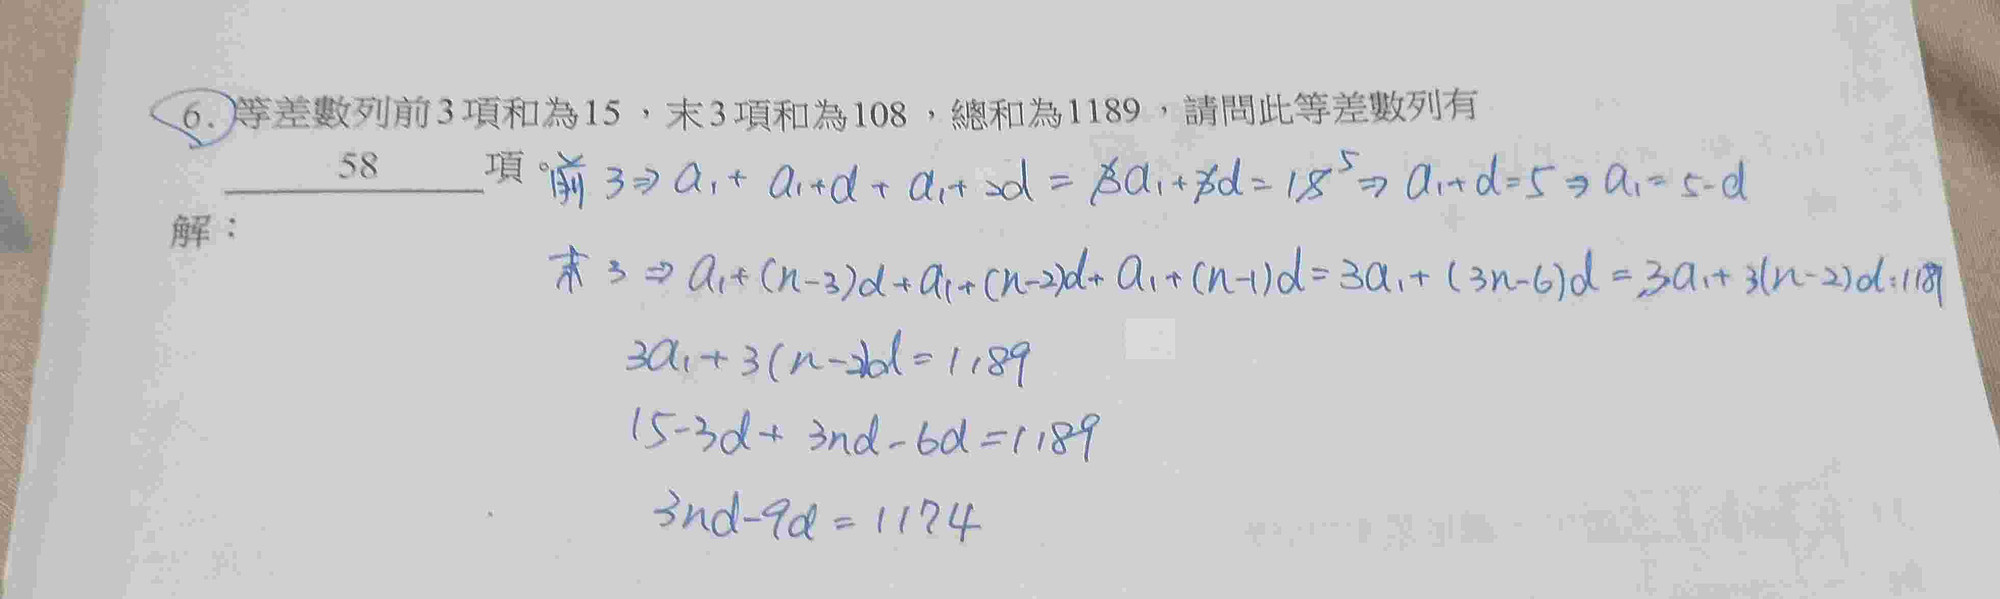 6. 等差數列前3項和為15，末3項和為108，總和為1189，請問此等差數列有
58 項。前 3⇒ a₁+ a₁+d + a₁+2d = 3a₁+3d=15 5 ⇒ a₁+d=5 ⇒ a₁= 5-d
解：
末 3 ⇒ a₁+(n-3)d+a₁+(n-2)d+ a₁+(n-1)d=3a₁+(3n-6)d=3a₁+3(n-2)d=1189
3a₁+3(n-2)d=1189
15-3d+ 3nd-6d=1189
3nd-9d=1174